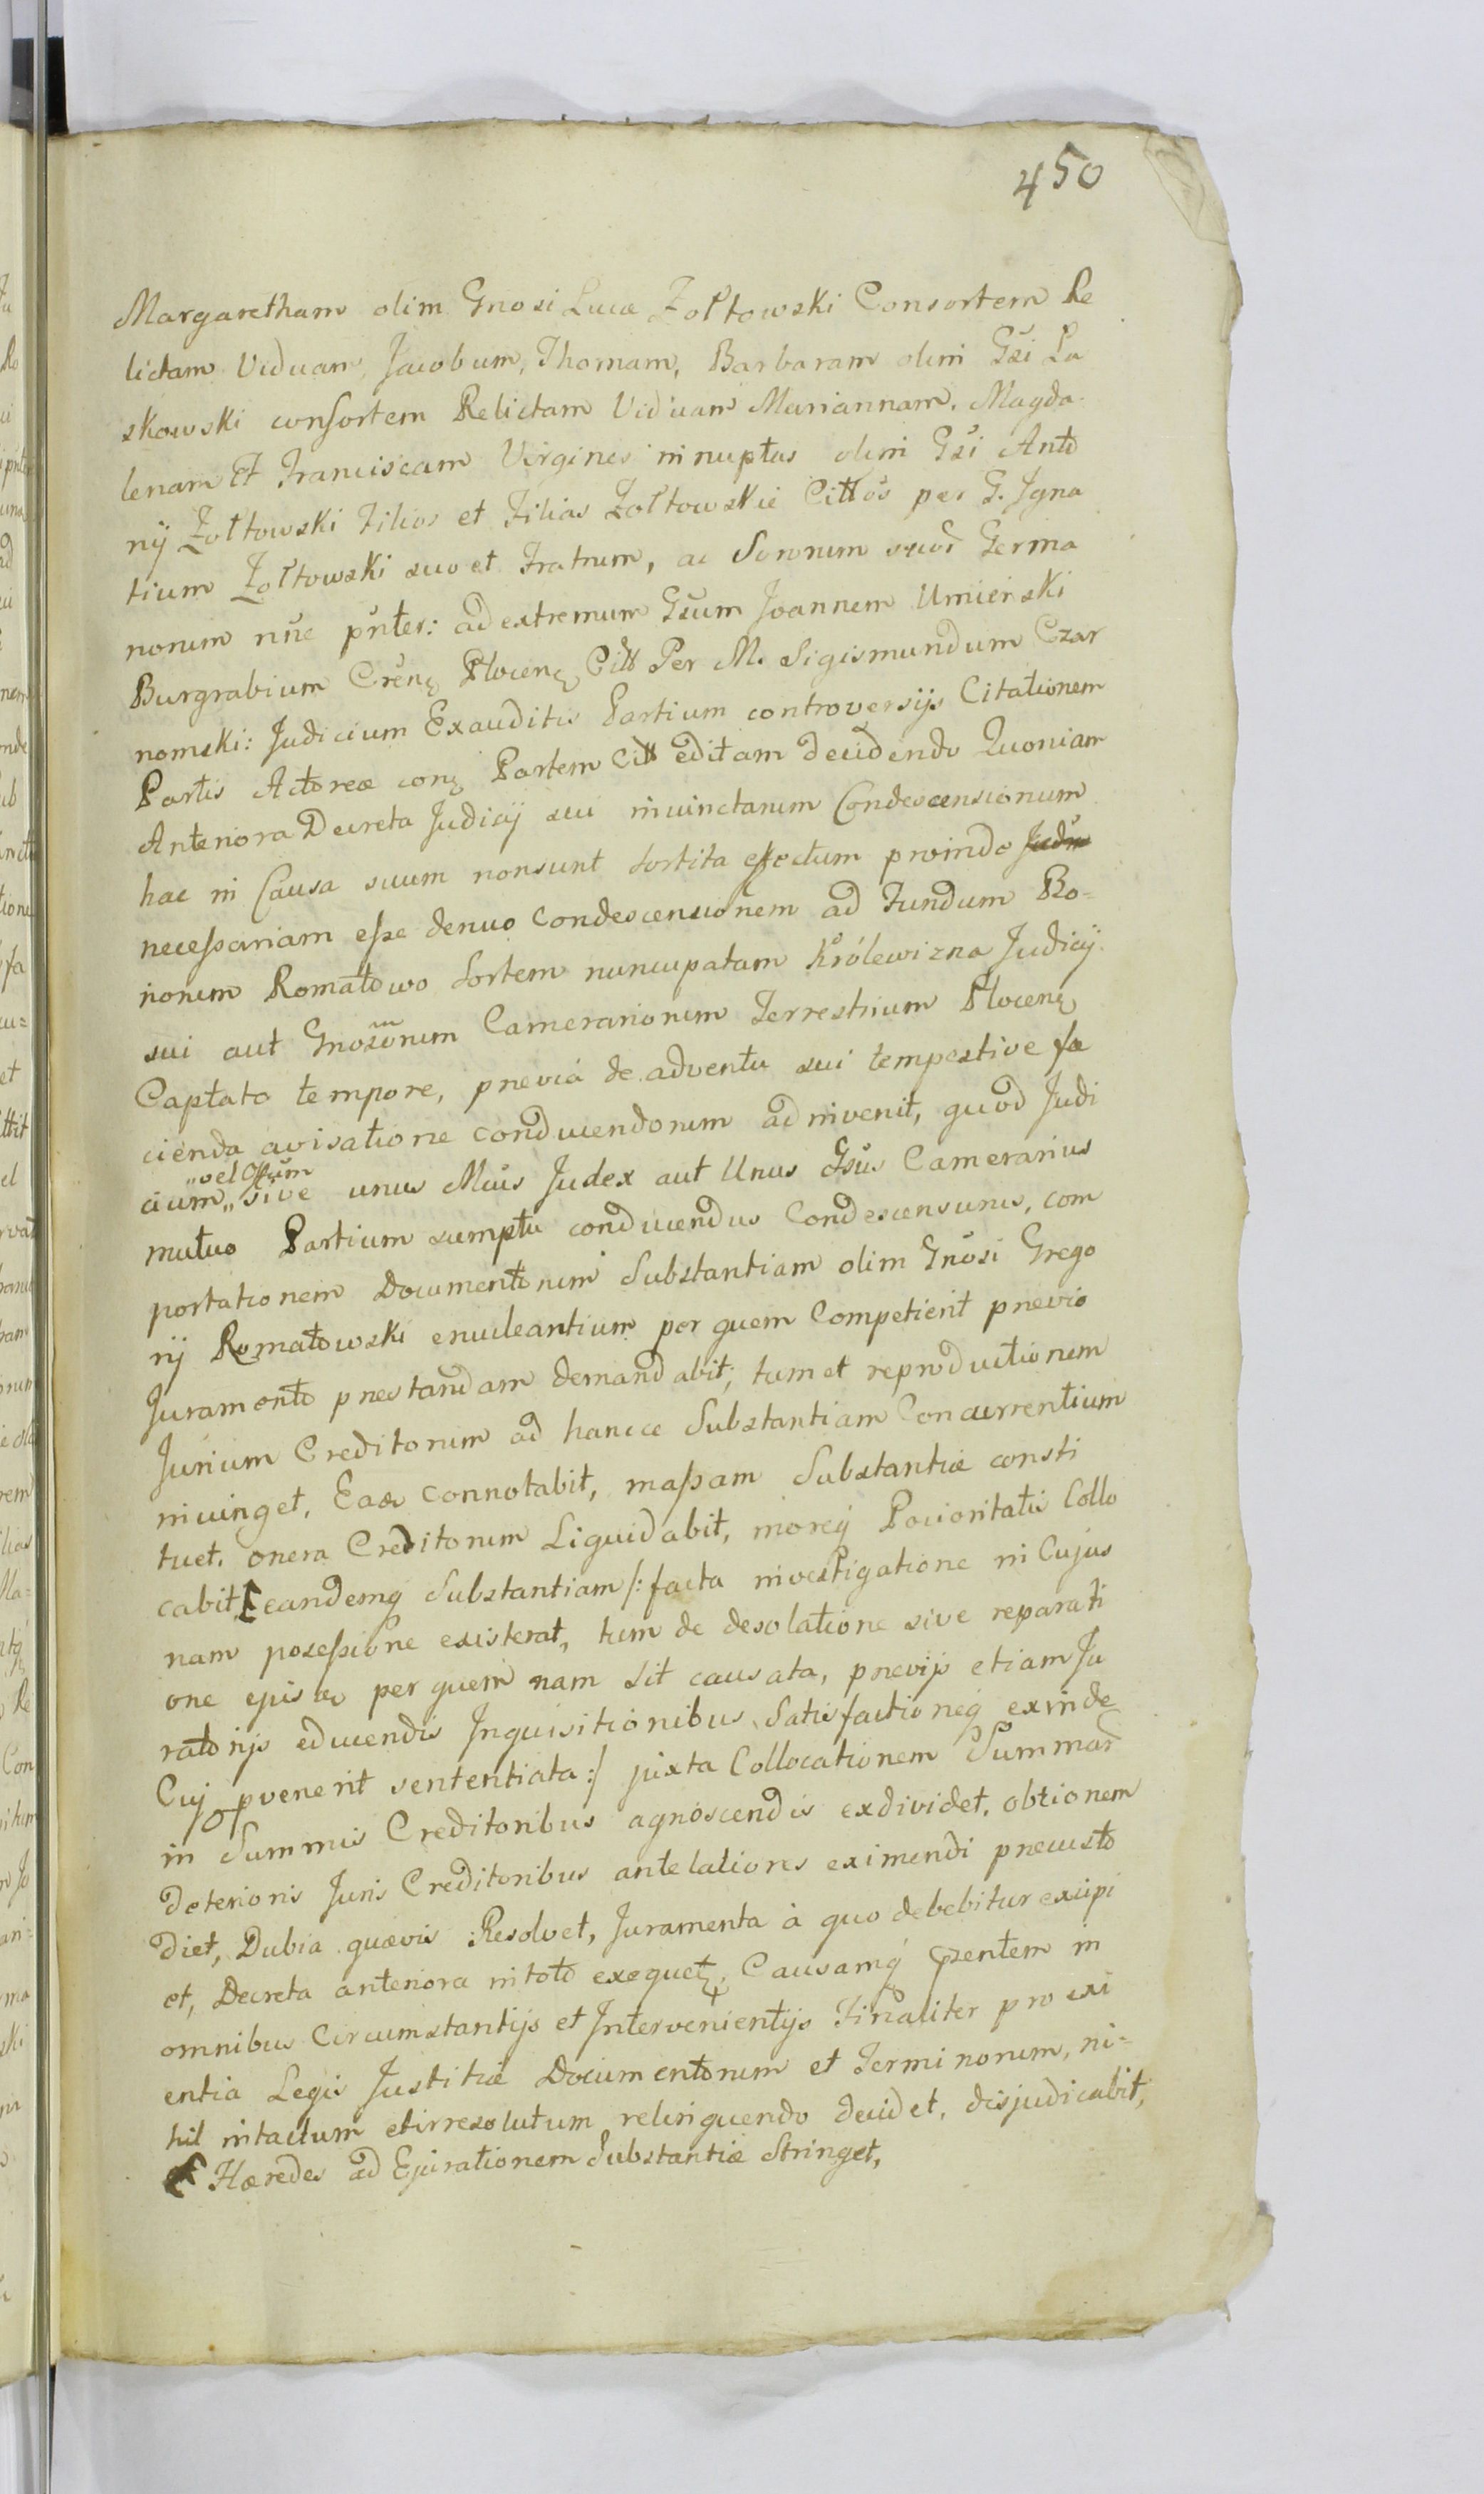 450
Margaretham olim Gnosi Lucæ Zołtowski Consortem Re
lictam Viduam, Jacobum, Thomam, Barbaram olim Gsi La
skowski consortem Relictam Viduam Mariannam, Magda-
lenam Et Franciscam Virgines innuptas olim Gsi Anto
nij Zołtowski Filios et Filias Zołtowskie Cittos per G. Igna
tium Zołtowski suo et Fratrum, ac Sororum suor Germa
norum nñe pñter: ad extremum Gsum Joannem Umieński
Burgrabium Crens Plocens Citt Per M. Sigismundum Czar
nomski: Judicium Exauditis Partium controversijs Citationem
Partis Actoreæ conq Partem Citt editam decidendo Quoniam
Anteriora Decreta Judicij sui invinctarum Condescensionum
hac in Causa suum non sunt sortita effectum proinde
necessariam esse denuo condescensionem ad Fundum Bo-
norum Romatowo Sortem nuncupatam Królewizna Judicij
sui aut Gnosorum Camerariorum Terrestrium Plocens
Captato tempore, prævia de adventu sui tempestive fa
cienda avisatione conducendorum adinvenit, quod Judi
cium „vel Offum„ sive unus Mcus Judex aut Unus Gsus Camerarius
mutuo Partium sumptu conducendus Condescensurus, com
portationem Documentorum Substantiam olim Gnosi Grego
rij Romatowski enucleantium per quem Competierit prævio
Juramento præstandam demandabit; tum et reproductionem
Jurium Creditorum ad hancce Substantiam Concurrentium
iniunget, Eaq connotabit, massam Substantiæ consti
tuet, onera Creditorum Liquidabit, inoreq Pocioritatis Collo
cabit eandemq Substantiam /: facta investigatione in Cujus
nam possessione existerat, tum de desolatione sive reparati
one ejus ac per quem nam sit causata, prævijs etiam Ju
ratorijs educendis Inquisitionibus, Satisfactioneq exinde
Cuj pvenerit sententiata :/ juxta Collocationem Summar
in Summis Creditoribus agnoscendis exdividet, obtionem
deterioris Juris Creditoribus antelationis eximendi præcusto
diet, Dubia quævis Resolvet, Juramenta à quo debebitur excipi
et, Decreta anteriora in toto exequet, Causamq præzentem in
omnibus Circumstantijs et Intervenientijs Finaliter pro exi
entia Legis Justitiæ Documentorum et Terminorum, ni-
hil intactum et irresolutum relinquendo decidet, disjudicabit,
Hæredes ad Ejurationem Substantiæ Stringet,